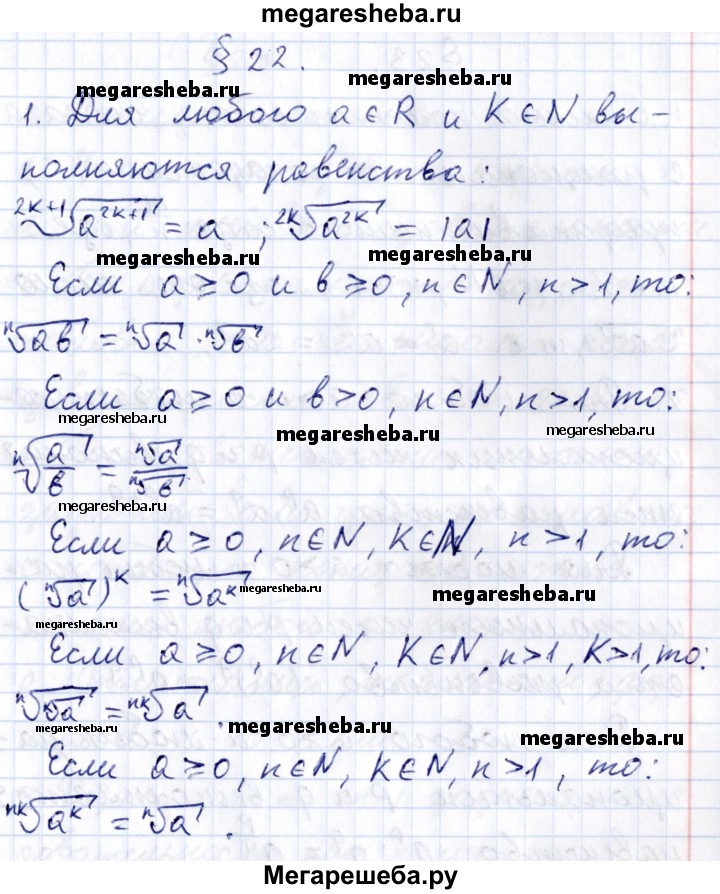 megaresheba.ru
§ 22.
megaresheba.ru megaresheba.ru
1. Для любого a ∈ R и K ∈ N вы-
полняются равенства:
²ᴷ⁺¹√(a²ᴷ⁺¹) = a ; ²ᴷ√(a²ᴷ) = |a|
megaresheba.ru megaresheba.ru
Если a ≥ 0 и в ≥ 0, n ∈ N, n > 1, то:
ⁿ√(aв) = ⁿ√a · ⁿ√в
Если a ≥ 0 и в > 0, n ∈ N, n > 1, то:
megaresheba.ru megaresheba.ru megaresheba.ru
ⁿ√(a/в) = ⁿ√a / ⁿ√в
megaresheba.ru megaresheba.ru
Если a ≥ 0, n ∈ N, K ∈ N, n > 1, то:
(ⁿ√a)ᴷ = ⁿ√(aᴷ)
megaresheba.ru megaresheba.ru megaresheba.ru
Если a ≥ 0, n ∈ N, K ∈ N, n > 1, K > 1, то:
ⁿ√(ᴷ√a) = ⁿᴷ√a .
megaresheba.ru megaresheba.ru megaresheba.ru
Если a ≥ 0, n ∈ N, K ∈ N, n > 1, то:
ⁿᴷ√(aᴷ) = ⁿ√a .
megaresheba.ru megaresheba.ru
Мегарешеба.ру